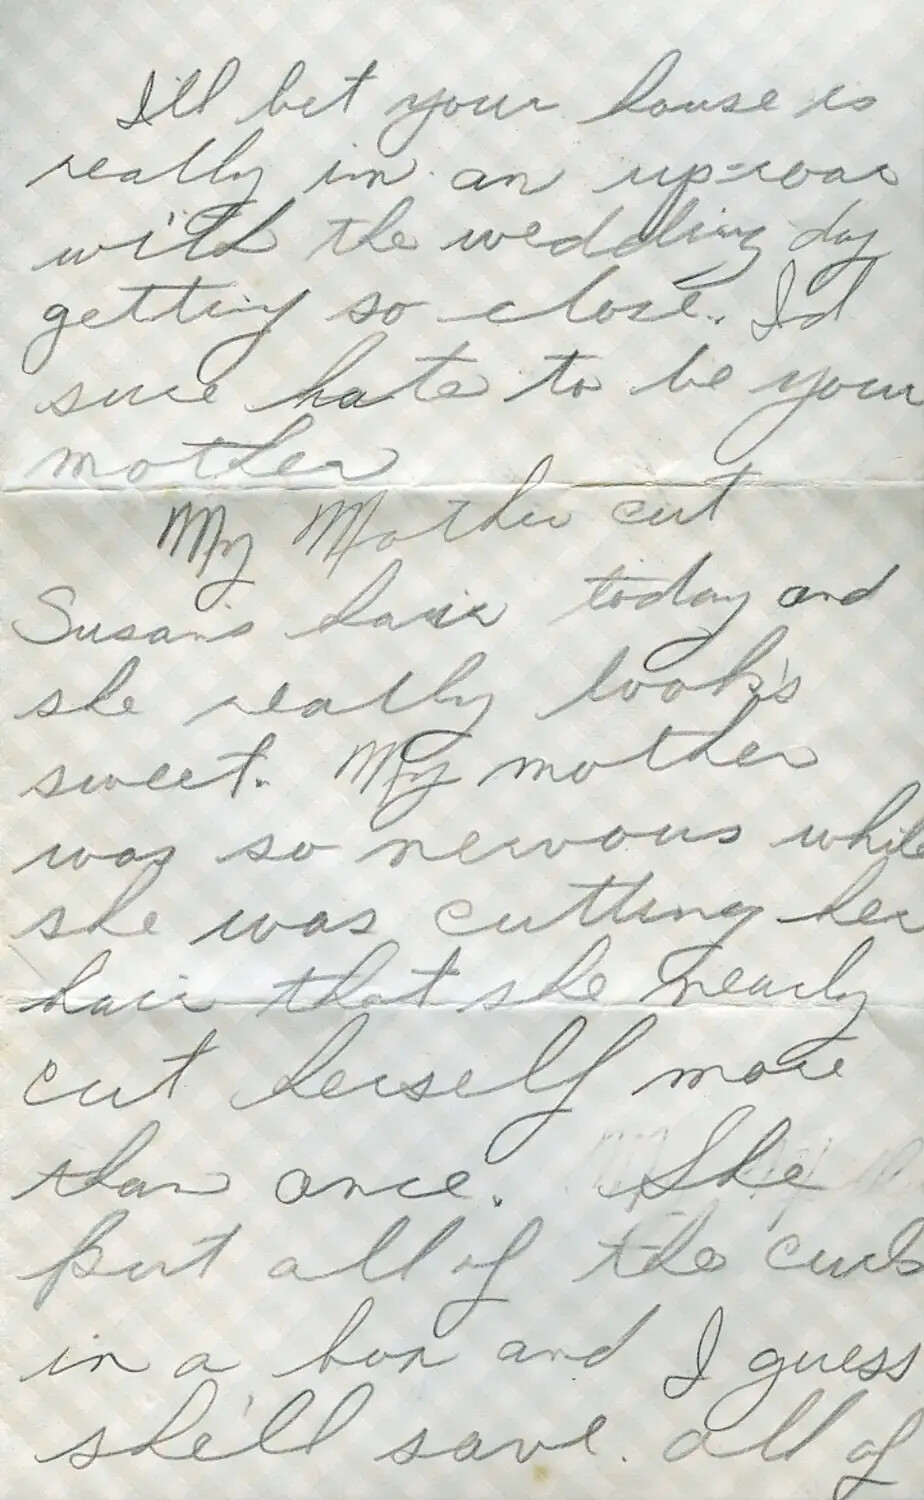 I'll bet your house is
really in an up-roar
with the wedding day
getting so close. I'd
sure hate to be your
mother
My Mother cut
Susan's hair today and
she really look's
sweet. My mother
was so nervous while
she was cutting her
hair that she nearly
cut herself more
than once. She
put all of the curls
in a box and I guess
she'll save all of